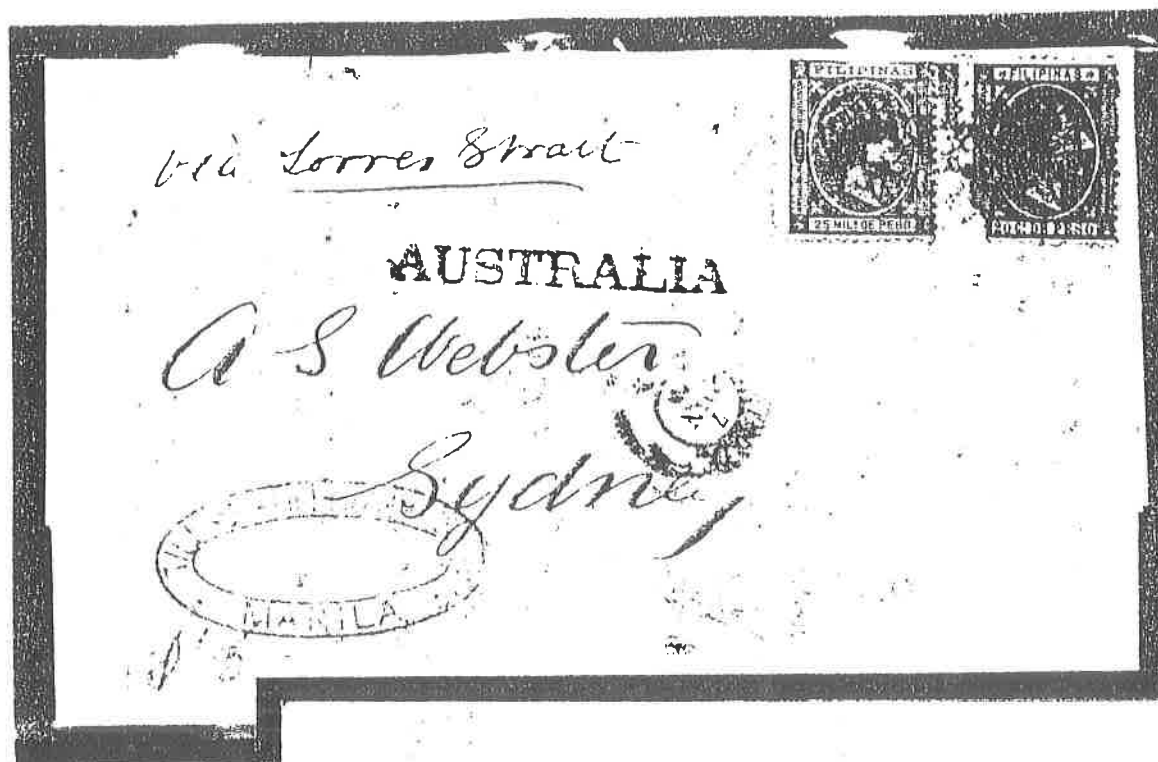 via Torres Strait
FILIPINAS
25 MILs DE PESO
FILIPINAS
DE PESO
AUSTRALIA
A S Webster
Sydney
MANILA